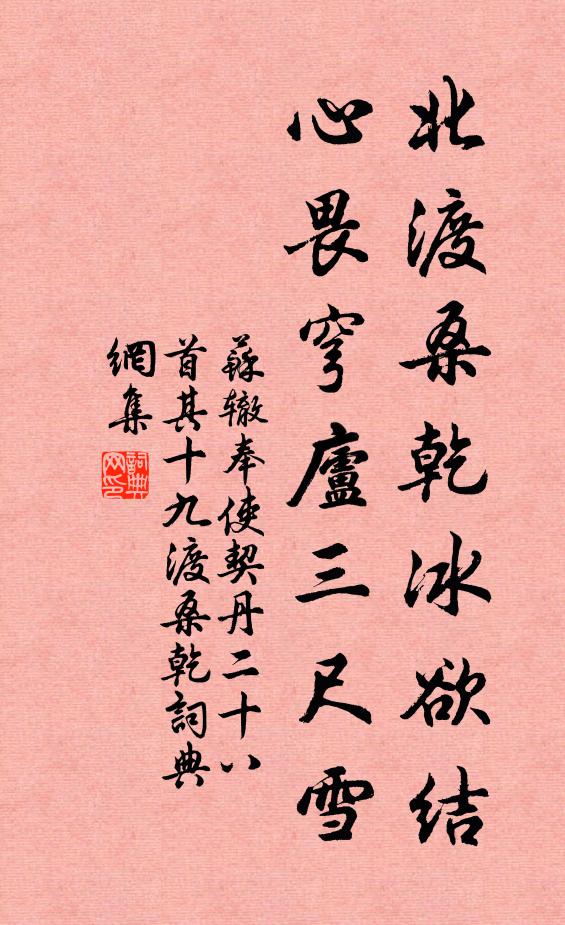 北渡桑乾冰欲结
心畏穹廬三尺雪
蘇辙奉使契丹二十八
首其十九渡桑乾詞典
網集
詞典
网印